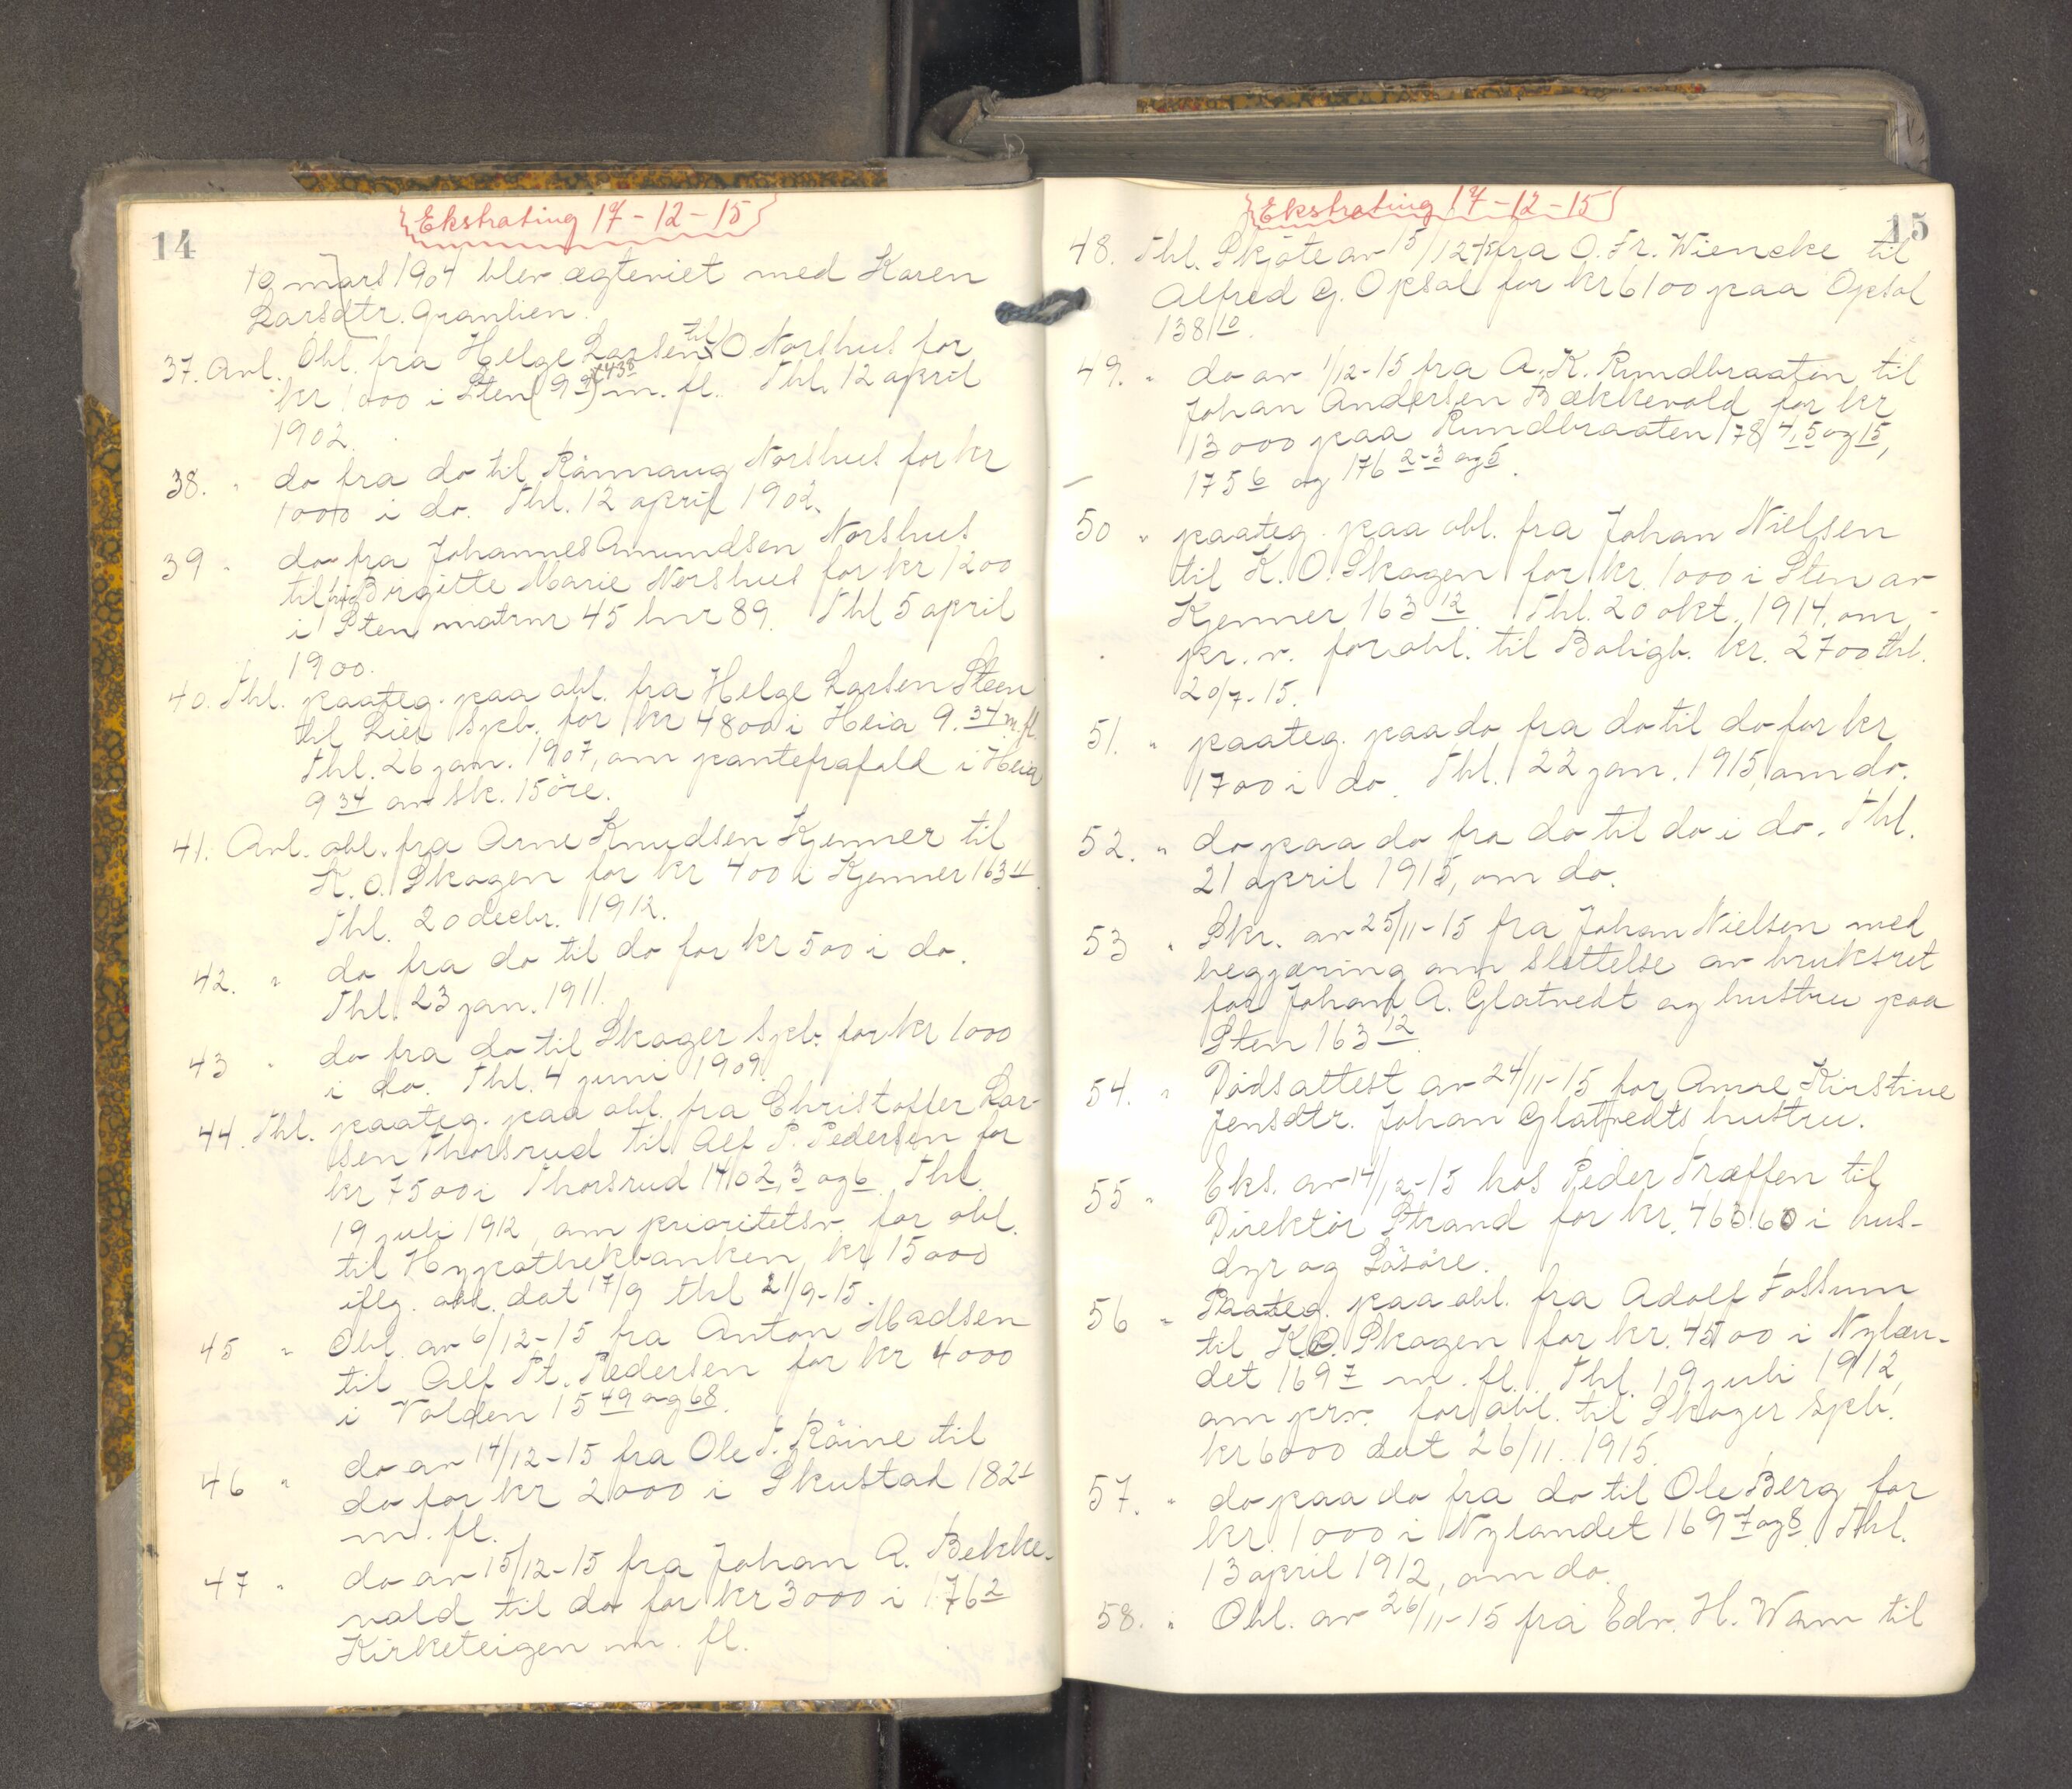 14
Ekstrating 17-12-15
19 mars 1904 blev ægteviet med Karen
Larsdtr. Granlien.
37. Avl. Obl. fra Helge Larsen til O Norshus for
kr 1000 i Sten (9 m. fl. Thl. 12 april
1902.
38. " do fra do til Rönnaug Norshus for kr
1000 i do. Thl. 12 april 1902.
39 " do fra Johannes Amundsen Norshus
til Birgitte Marie Norshus for kr 1200
i Sten matrnr 45 lnr 89. Thl 5 april
1900.
40. Thl. paateg. paa obl. fra Helge Larsen Steen
til Lier Spb. for kr 4800 i Heia 9.34 m. fl.
Thl. 26 jan. 1907, om pantefrafald i Heia
9 34 av sk. 15 öre.
41. Avl. obl. fra Arne Knudsen Kjenner til
K. O. Skagen for kr 400 i Kjenner 163 11.
Thl. 20 decbr. 1912.
42. " do fra do til do for kr 500 i do.
Thl. 23 jan. 1911.
43 " do fra do til Skoger Spb. for kr 1000
i do. Thl. 4 juni 1909.
44. Thl. paateg. paa obl. fra Christoffer Lar-
sen Thorsrud til Alf P. Pedersen for
kr 7500 i Thorsrud 140 2, 3 og 6. Thl.
19 juli 1912, om prioritetsv. for obl.
til Hypothekbanken, kr 15000
iflg. obl. dat 17/9 thl 21/9-15.
45 " Obl. av 6/12-15 fra Anton Madsen
til Alf Pt. Pedersen for kr 4000
i Volden 15 49 og 68.
46 " do av 14/12-15 fra Ole T. Röine til
do for kr 2000 i Skustad 182 1
m. fl.
47 " do av 15/12-15 fra Johan A. Bekke-
vold til do for kr 3000 i 176 2
Kirketeigen m. fl.
15
Ekstrating 17-12-15
48. Thl. Skjöte av 15/12-15 fra O. Fr. Wiencke til
Alfred G. Opsal for kr 6100 paa Opsal
138 10.
49. " do av 1/12-15 fra A. K. Rundbraaten til
Johan Andersen Bækkevold for kr
13000 paa Rundbraaten 178 4, 5 og 15,
175 6 og 176 2-3 og 5.
50 " paateg. paa obl. fra Johan Nielsen
til K. O. Skagen for kr. 1000 i Sten av
Kjenner 163 12. Thl. 20 okt. 1914, om
pr. v. for obl. til Boligb. kr. 2700 thl.
20/7-15.
51. " paateg. paa do fra do til do for kr
1700 i do. Thl. 22 jan. 1915, om do.
52. " do paa do fra do til do i do. Thl.
21 april 1915, om do.
53 " Skr. av 25/11-15 fra Johan Nielsen med
begjæring om slettelse av bruksret
for Johan A. Glatvedt og hustru paa
Sten 163 12.
54. " Dödsattest av 24/11-15 for Anne Kirstine
Jensdtr. Johan Glatvedts hustru.
55 " Eks. av 14/12-15 hos Peder Træffen til
Direktör Strand for kr. 463.60 i hus-
dyr og Lösöre.
56 " Paateg. paa obl. fra Adolf Fossum
til K. O. Skagen for kr. 4500 i Nylæn-
det 169 7 m. fl. Thl. 19 juli 1912,
om prv. for obl. til Skoger Spb.
kr 6000 dat 26/11. 1915.
57. " do paa do fra do til Ole Berg for
kr. 1000 i Nylandet 169 7 og 8. Thl.
13 april 1912, om do.
58. " Obl. av 26/11-15 fra Edv. H. Wam til